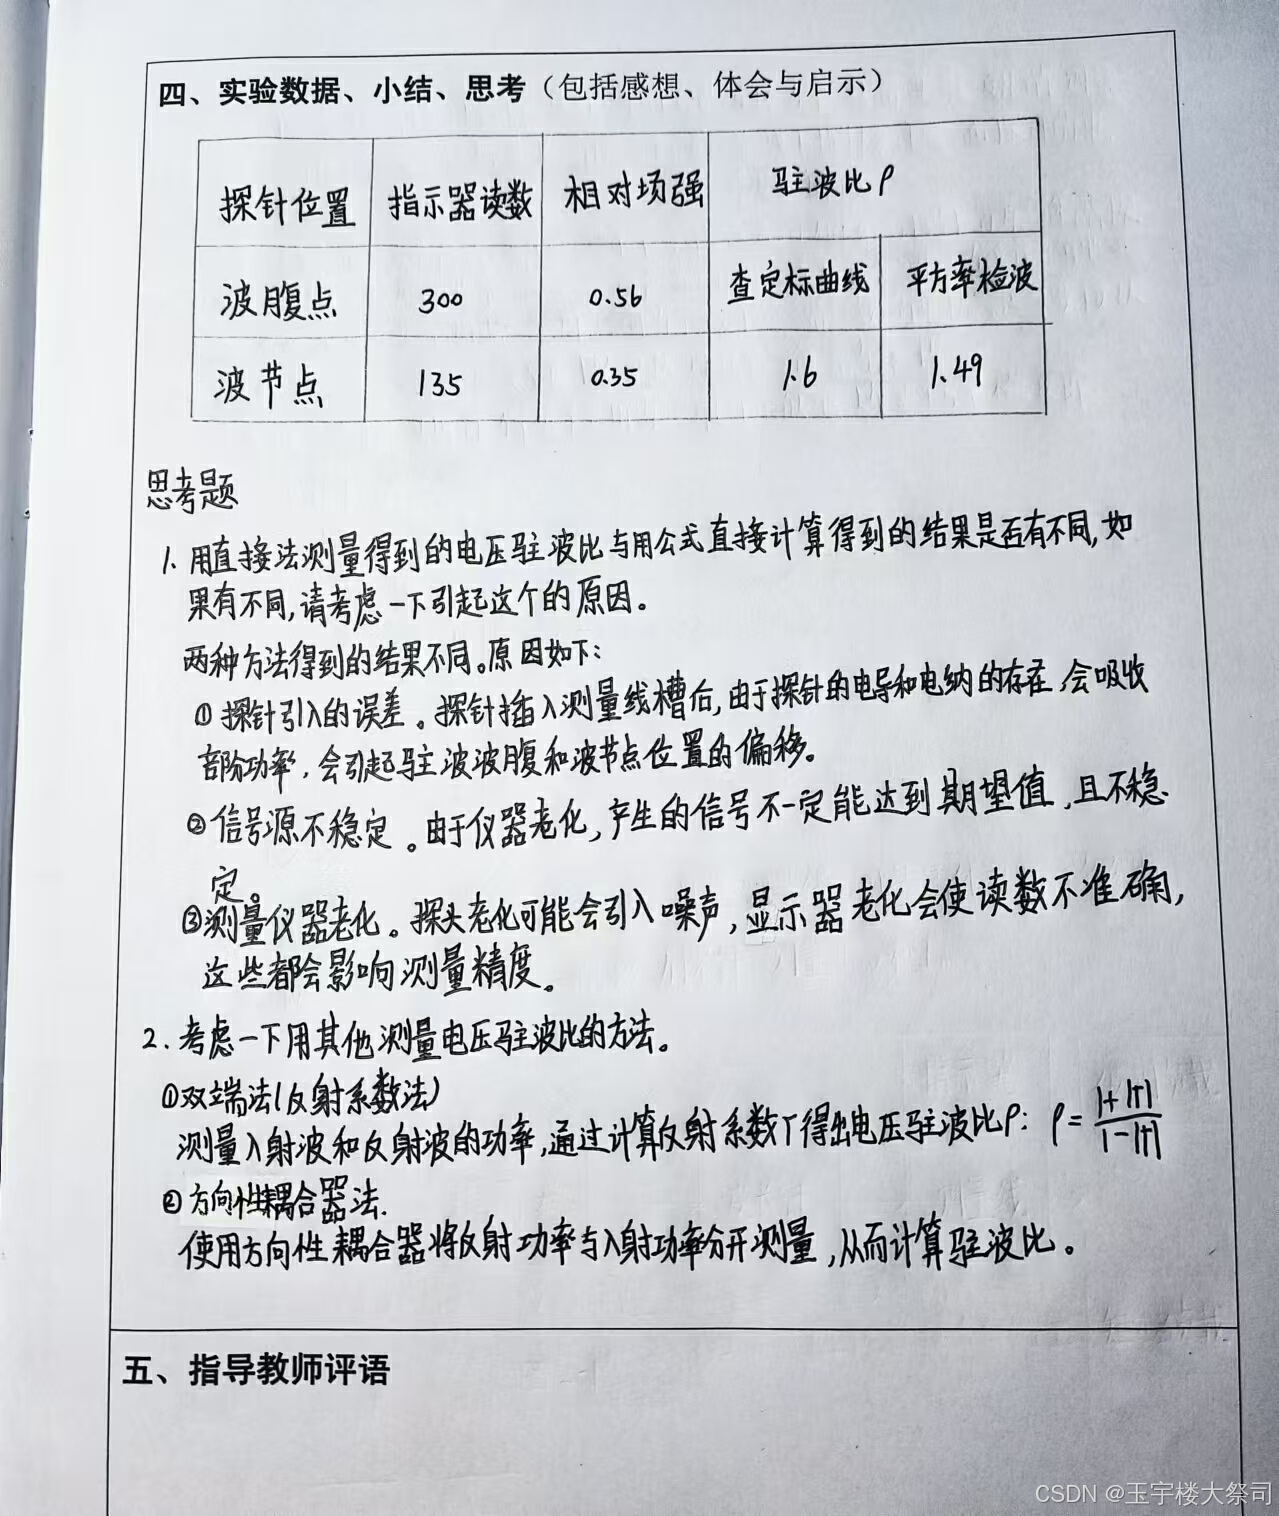 四、实验数据、小结、思考（包括感想、体会与启示）
探针位置 指示器读数 相对场强 驻波比ρ
波腹点 300 0.56 查定标曲线 平方率检波
波节点 135 0.35 1.6 1.49
思考题
1. 用直接法测量得到的电压驻波比与用公式直接计算得到的结果是否有不同,如
果有不同,请考虑一下引起这个的原因。
两种方法得到的结果不同。原因如下:
① 探针引入的误差。探针插入测量线槽后,由于探针的电导和电纳的存在,会吸收
部阶功率,会引起驻波波腹和波节点位置的偏移。
② 信号源不稳定。由于仪器老化,产生的信号不一定能达到期望值,且不稳
定。
③测量仪器老化。探头老化可能会引入噪声,显示器老化会使读数不准确,
这些都会影响测量精度。
2. 考虑一下用其他测量电压驻波比的方法。
①双端法(反射系数法)
测量入射波和反射波的功率,通过计算反射系数Γ得出电压驻波比ρ: ρ=1+|Γ|/1-|Γ|
② 方向性耦合器法.
使用方向性耦合器将反射功率与入射功率分开测量,从而计算驻波比。
五、指导教师评语
CSDN @玉宇楼大祭司